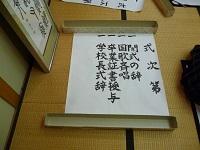 式次第
一 開式の辞
一 国歌斉唱
一 卒業証書授与
一 学校長式辞